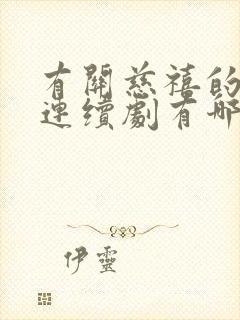 有關慈禧的
連續劇有哪
伊靈